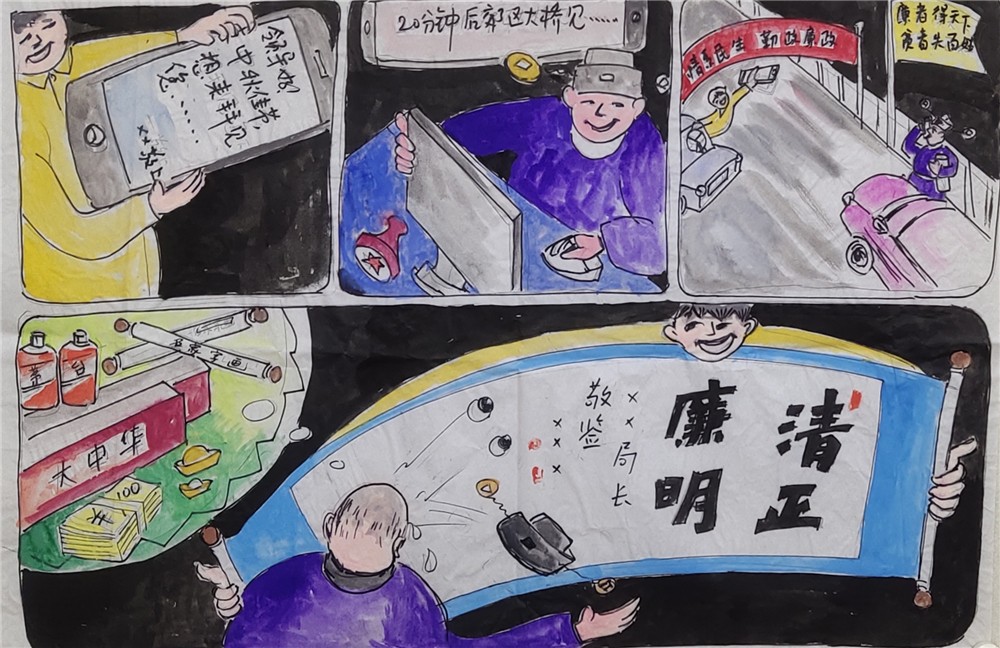 领导好
中秋佳节,
想来拜见
您……
××敬上
20分钟后郊区大桥见……
情系民生 勤政廉政
廉者得天下
贪者失百姓
茅台
名家字画
大中华
100
清正
廉明
××局长
敬鉴
××